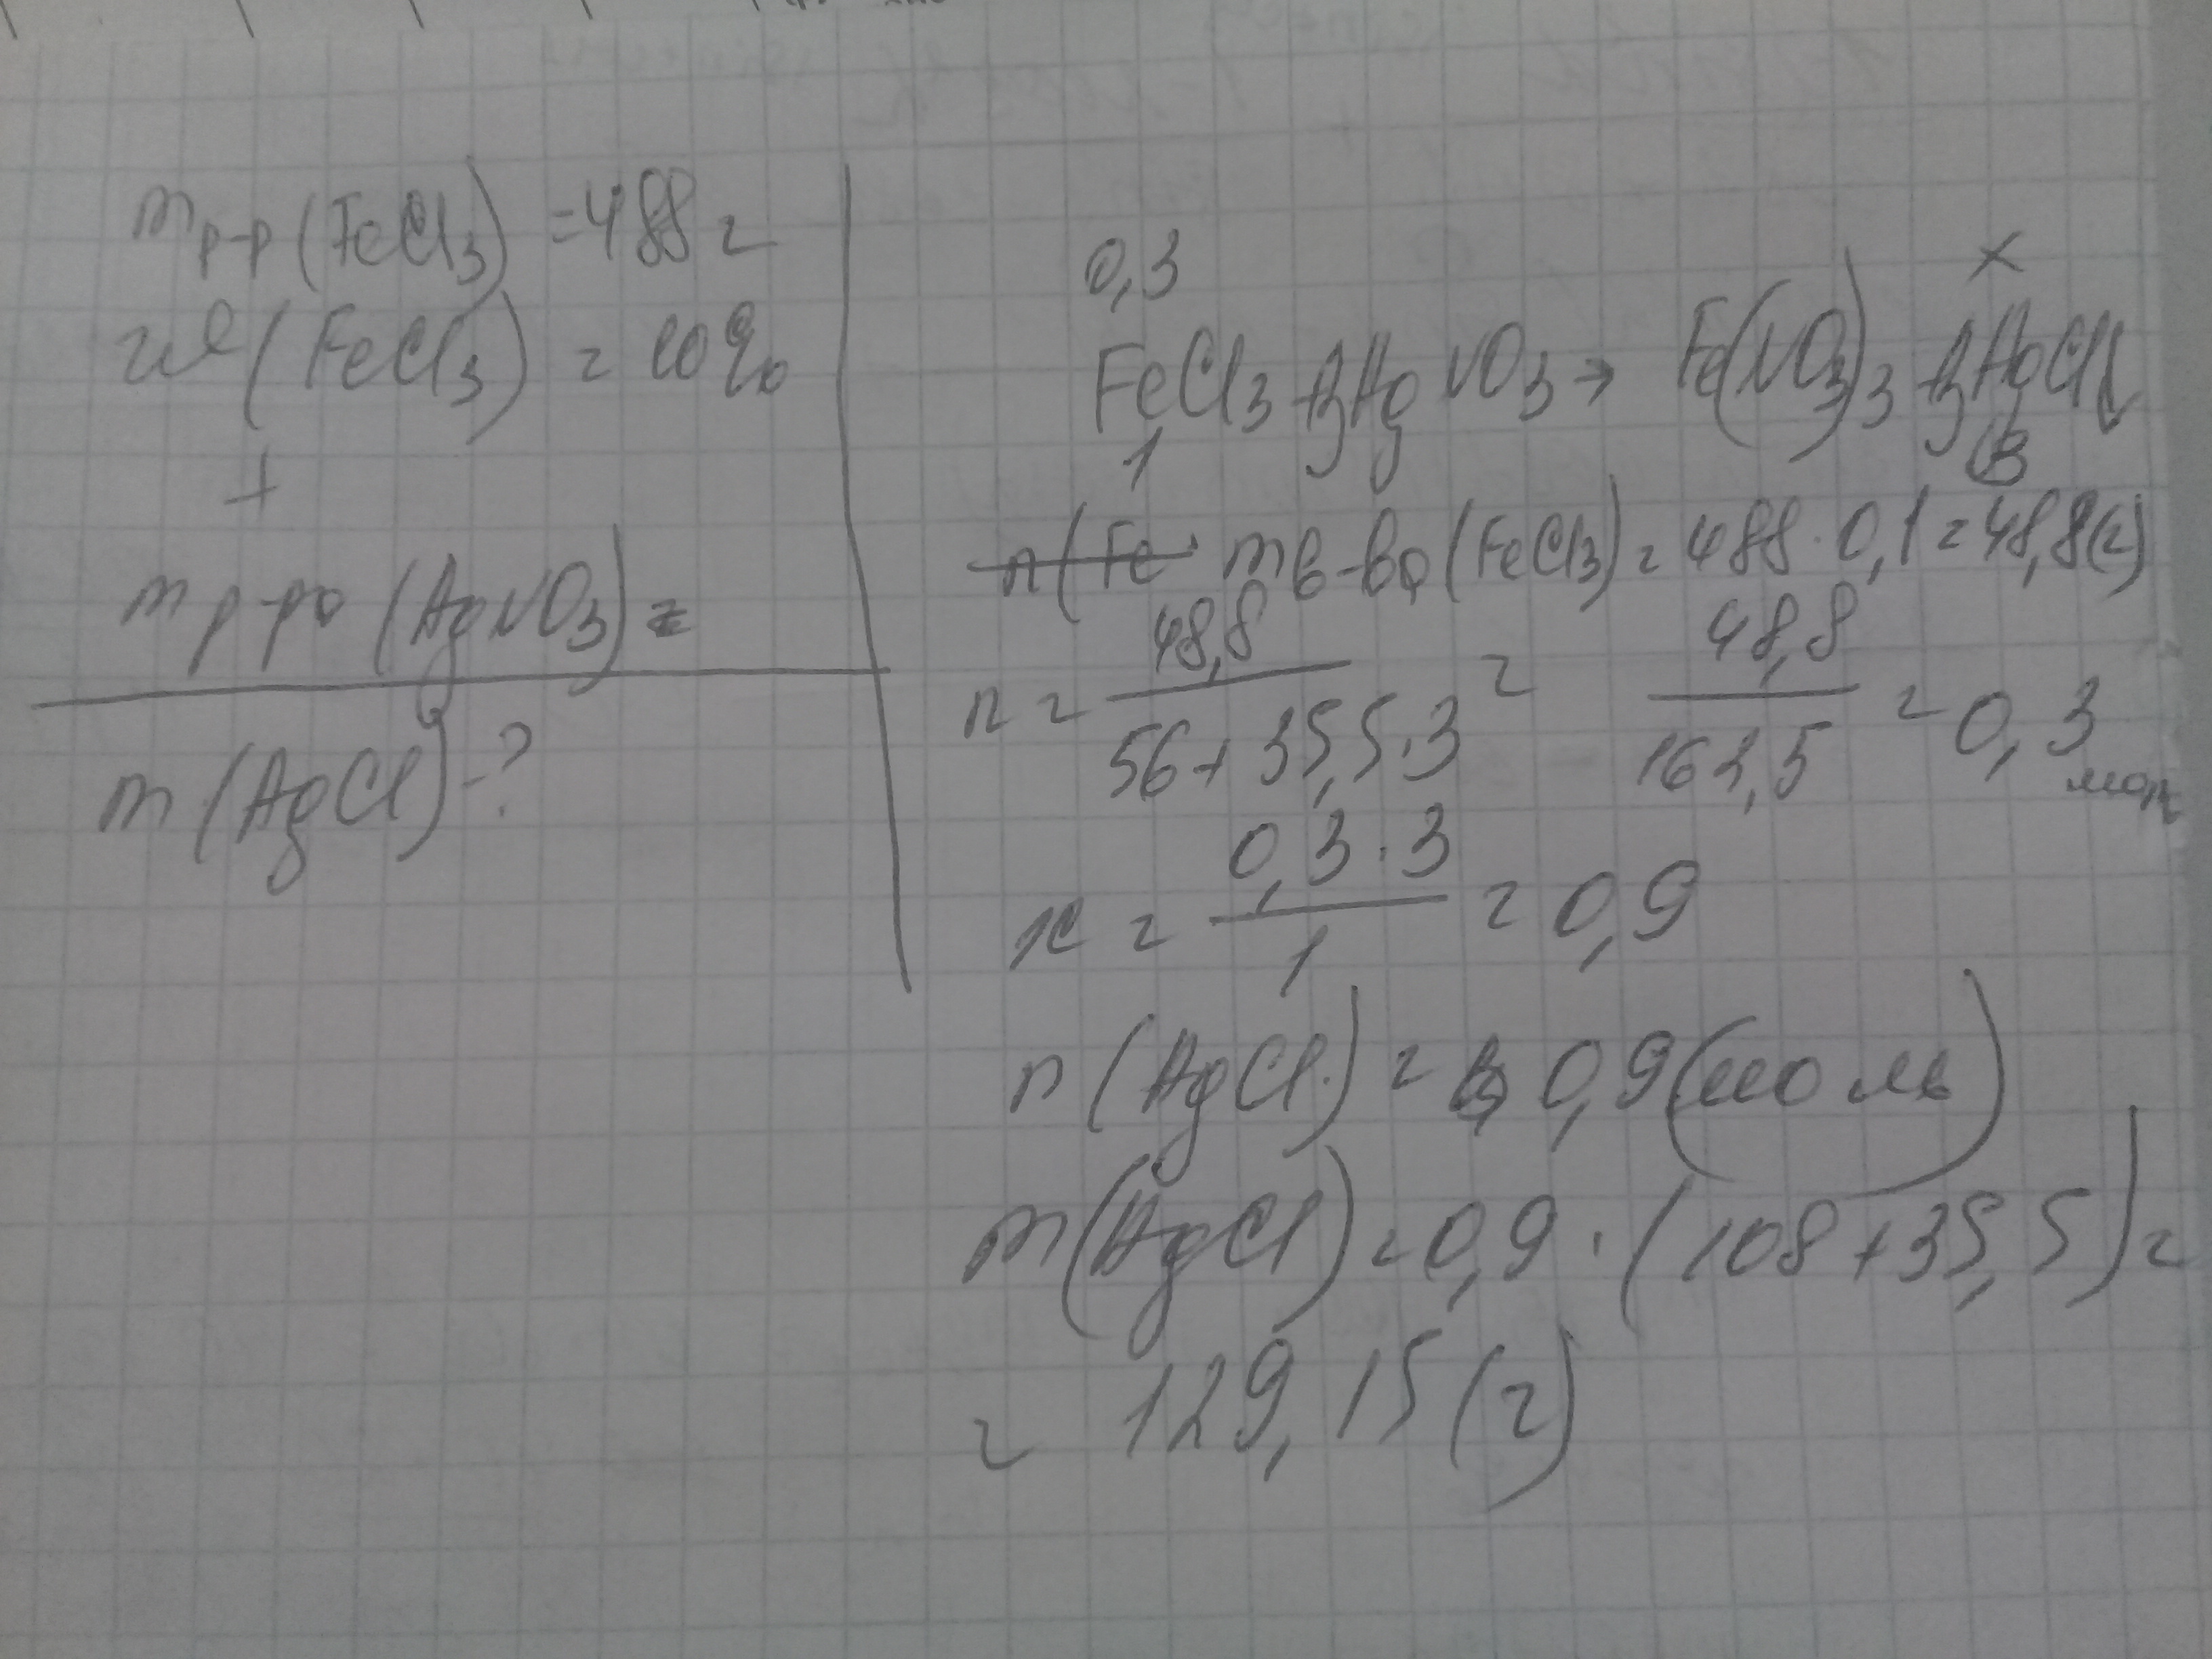 m р-р (FeCl3) = 488 г
w (FeCl3) = 10%
+
m р-ра (AgNO3) =
m (AgCl) - ?
0,3 x
FeCl3 + 3AgNO3 → Fe(NO3)3 + 3AgCl↓
1 3
n(Fe m в-ва (FeCl3) = 488 · 0,1 = 48,8(г)
n = 48,8 / 56 + 35,5 · 3 = 48,8 / 162,5 = 0,3 моль
x = 0,3 · 3 / 1 = 0,9
n (AgCl) = 0,9 (моль)
m (AgCl) = 0,9 · (108 + 35,5) =
= 129,15 (г)